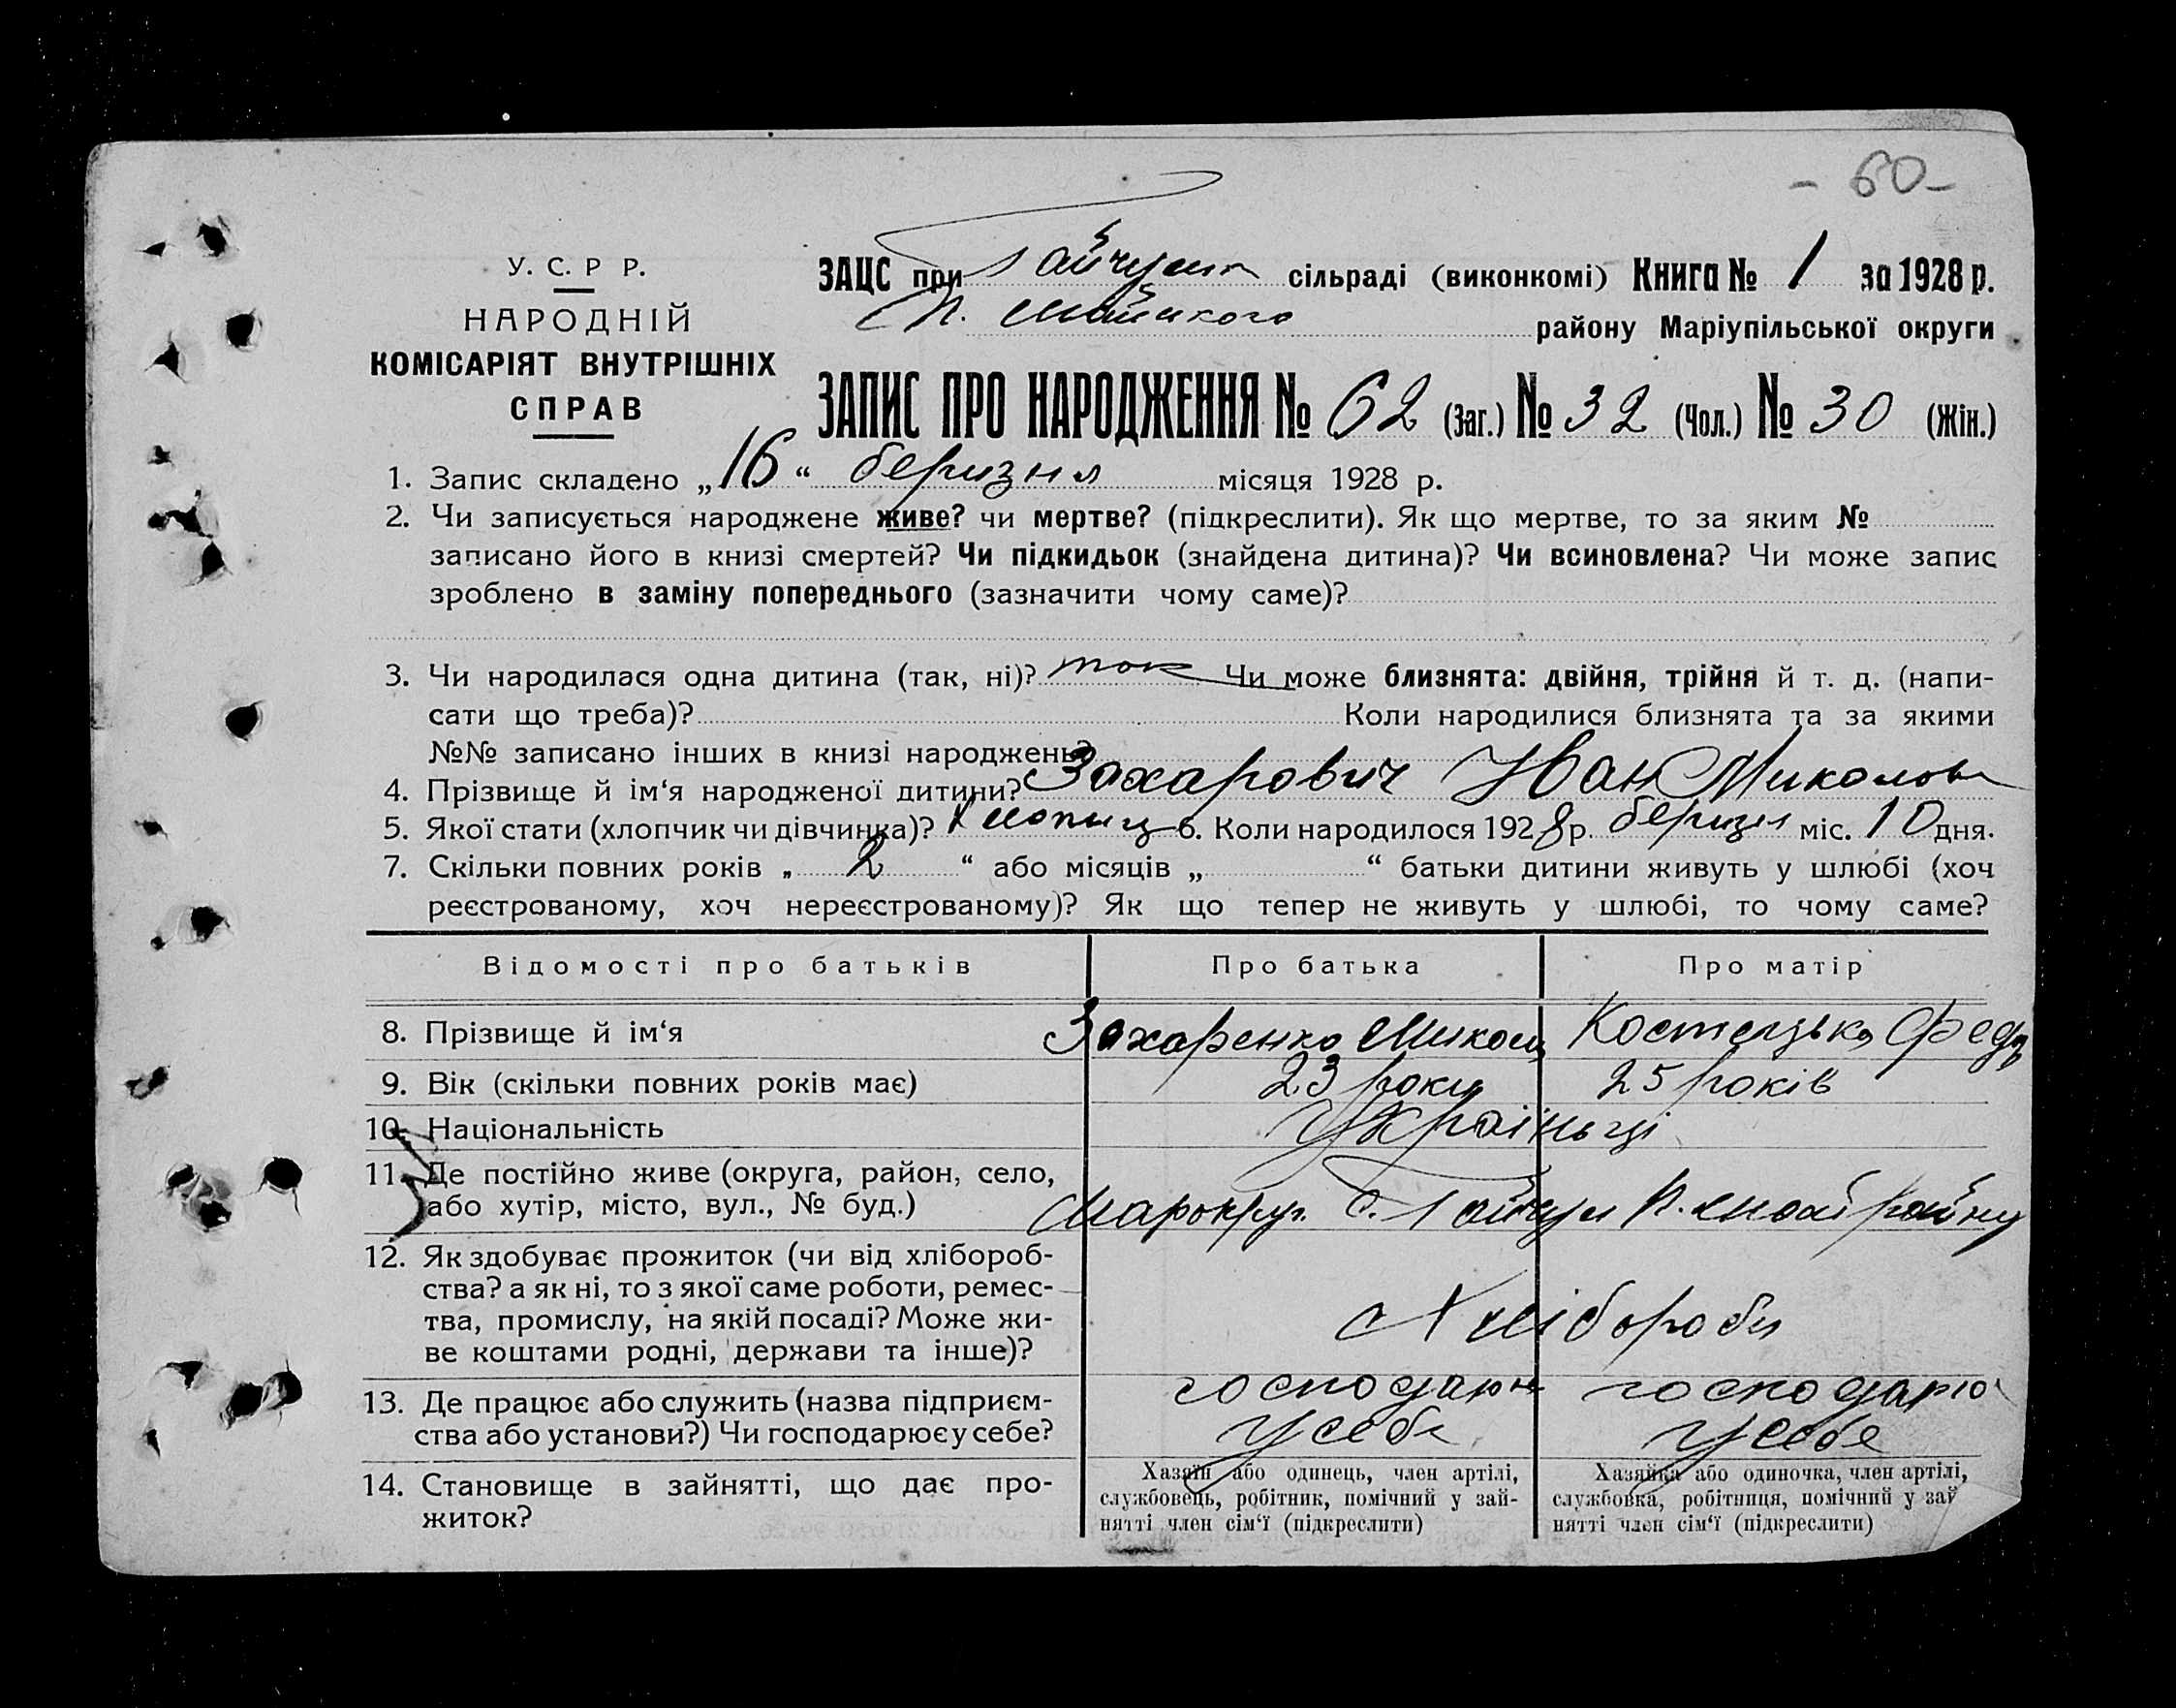 - 60 -
У. С. Р Р.
НАРОДНІЙ
КОМІСАРІЯТ ВНУТРІШНІХ
СПРАВ
ЗАЦС при Гайчулській сільраді (виконкомі) Книга № 1 за 1928 р.
району Маріупільської округи
ЗАПИС ПРО НАРОДЖЕННЯ № 62 (Заг.) № 32 (Чол.) № 30 (Жін.)
1. Запис складено „ 16 “ беризня місяця 1928 р.
2. Чи записується народжене живе? чи мертве? (підкреслити). Як що мертве, то за яким №
записано його в книзі смертей? Чи підкидьок (знайдена дитина)? Чи всиновлена? Чи може запис
зроблено в заміну попереднього (зазначити чому саме)?
3. Чи народилася одна дитина (так, ні)? так Чи може близнята: двійня, трійня й т. д. (напи-
сати що треба)? Коли народилися близнята та за якими
№№ записано інших в книзі народжень?
4. Прізвище й ім‘я народженої дитини? Захарович Іван Миколов
5. Якої стати (хлопчик чи дівчинка)? Хлопиц 6. Коли народилося 1928 р. беризня міс. 10 дня.
7. Скільки повних років „ 2 “ або місяців „ “ батьки дитини живуть у шлюбі (хоч
реєстрованому, хоч нереєстрованому)? Як що тепер не живуть у шлюбі, то чому саме?
Відомості про батьків Про батька Про матір
8. Прізвище й ім‘я Захаренко Микола Костецька Федо
9. Вік (скільки повних років має) 23 роки 25 років
10. Національність Україньці
11. Де постійно живе (округа, район, село,
або хутір, місто, вул., № буд.) Марокруг. с. Гайчул райну
12. Як здобуває прожиток (чи від хлібороб-
ства? а як ні, то з якої саме роботи, ремес-
тва, промислу, на якій посаді? Може жи-
ве коштами родні, держави та інше)? Хлібороби
13. Де працює або служить (назва підприєм- господарю господарю
ства або установи?) Чи господарює у себе? у себе у себе
14. Становище в зайнятті, що дає про-
житок?
Хазяїн або одинець, член артілі,
службовець, робітник, помічний у зай-
нятті член сім‘ї (підкреслити)
Хазяйка або одиночка, член артілі,
службовка, робітниця, помічний у зай
нятті член сім‘ї (підкреслити)